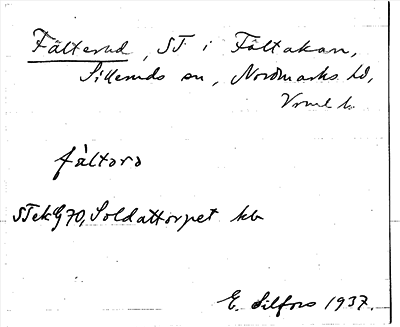 Fälterud, ST i Fältakan,
Silleruds sn, Nordmarks hd,
Vrml l.
fàltərə
STek G70, Soldattorpet kb
E. Silfors 1937.